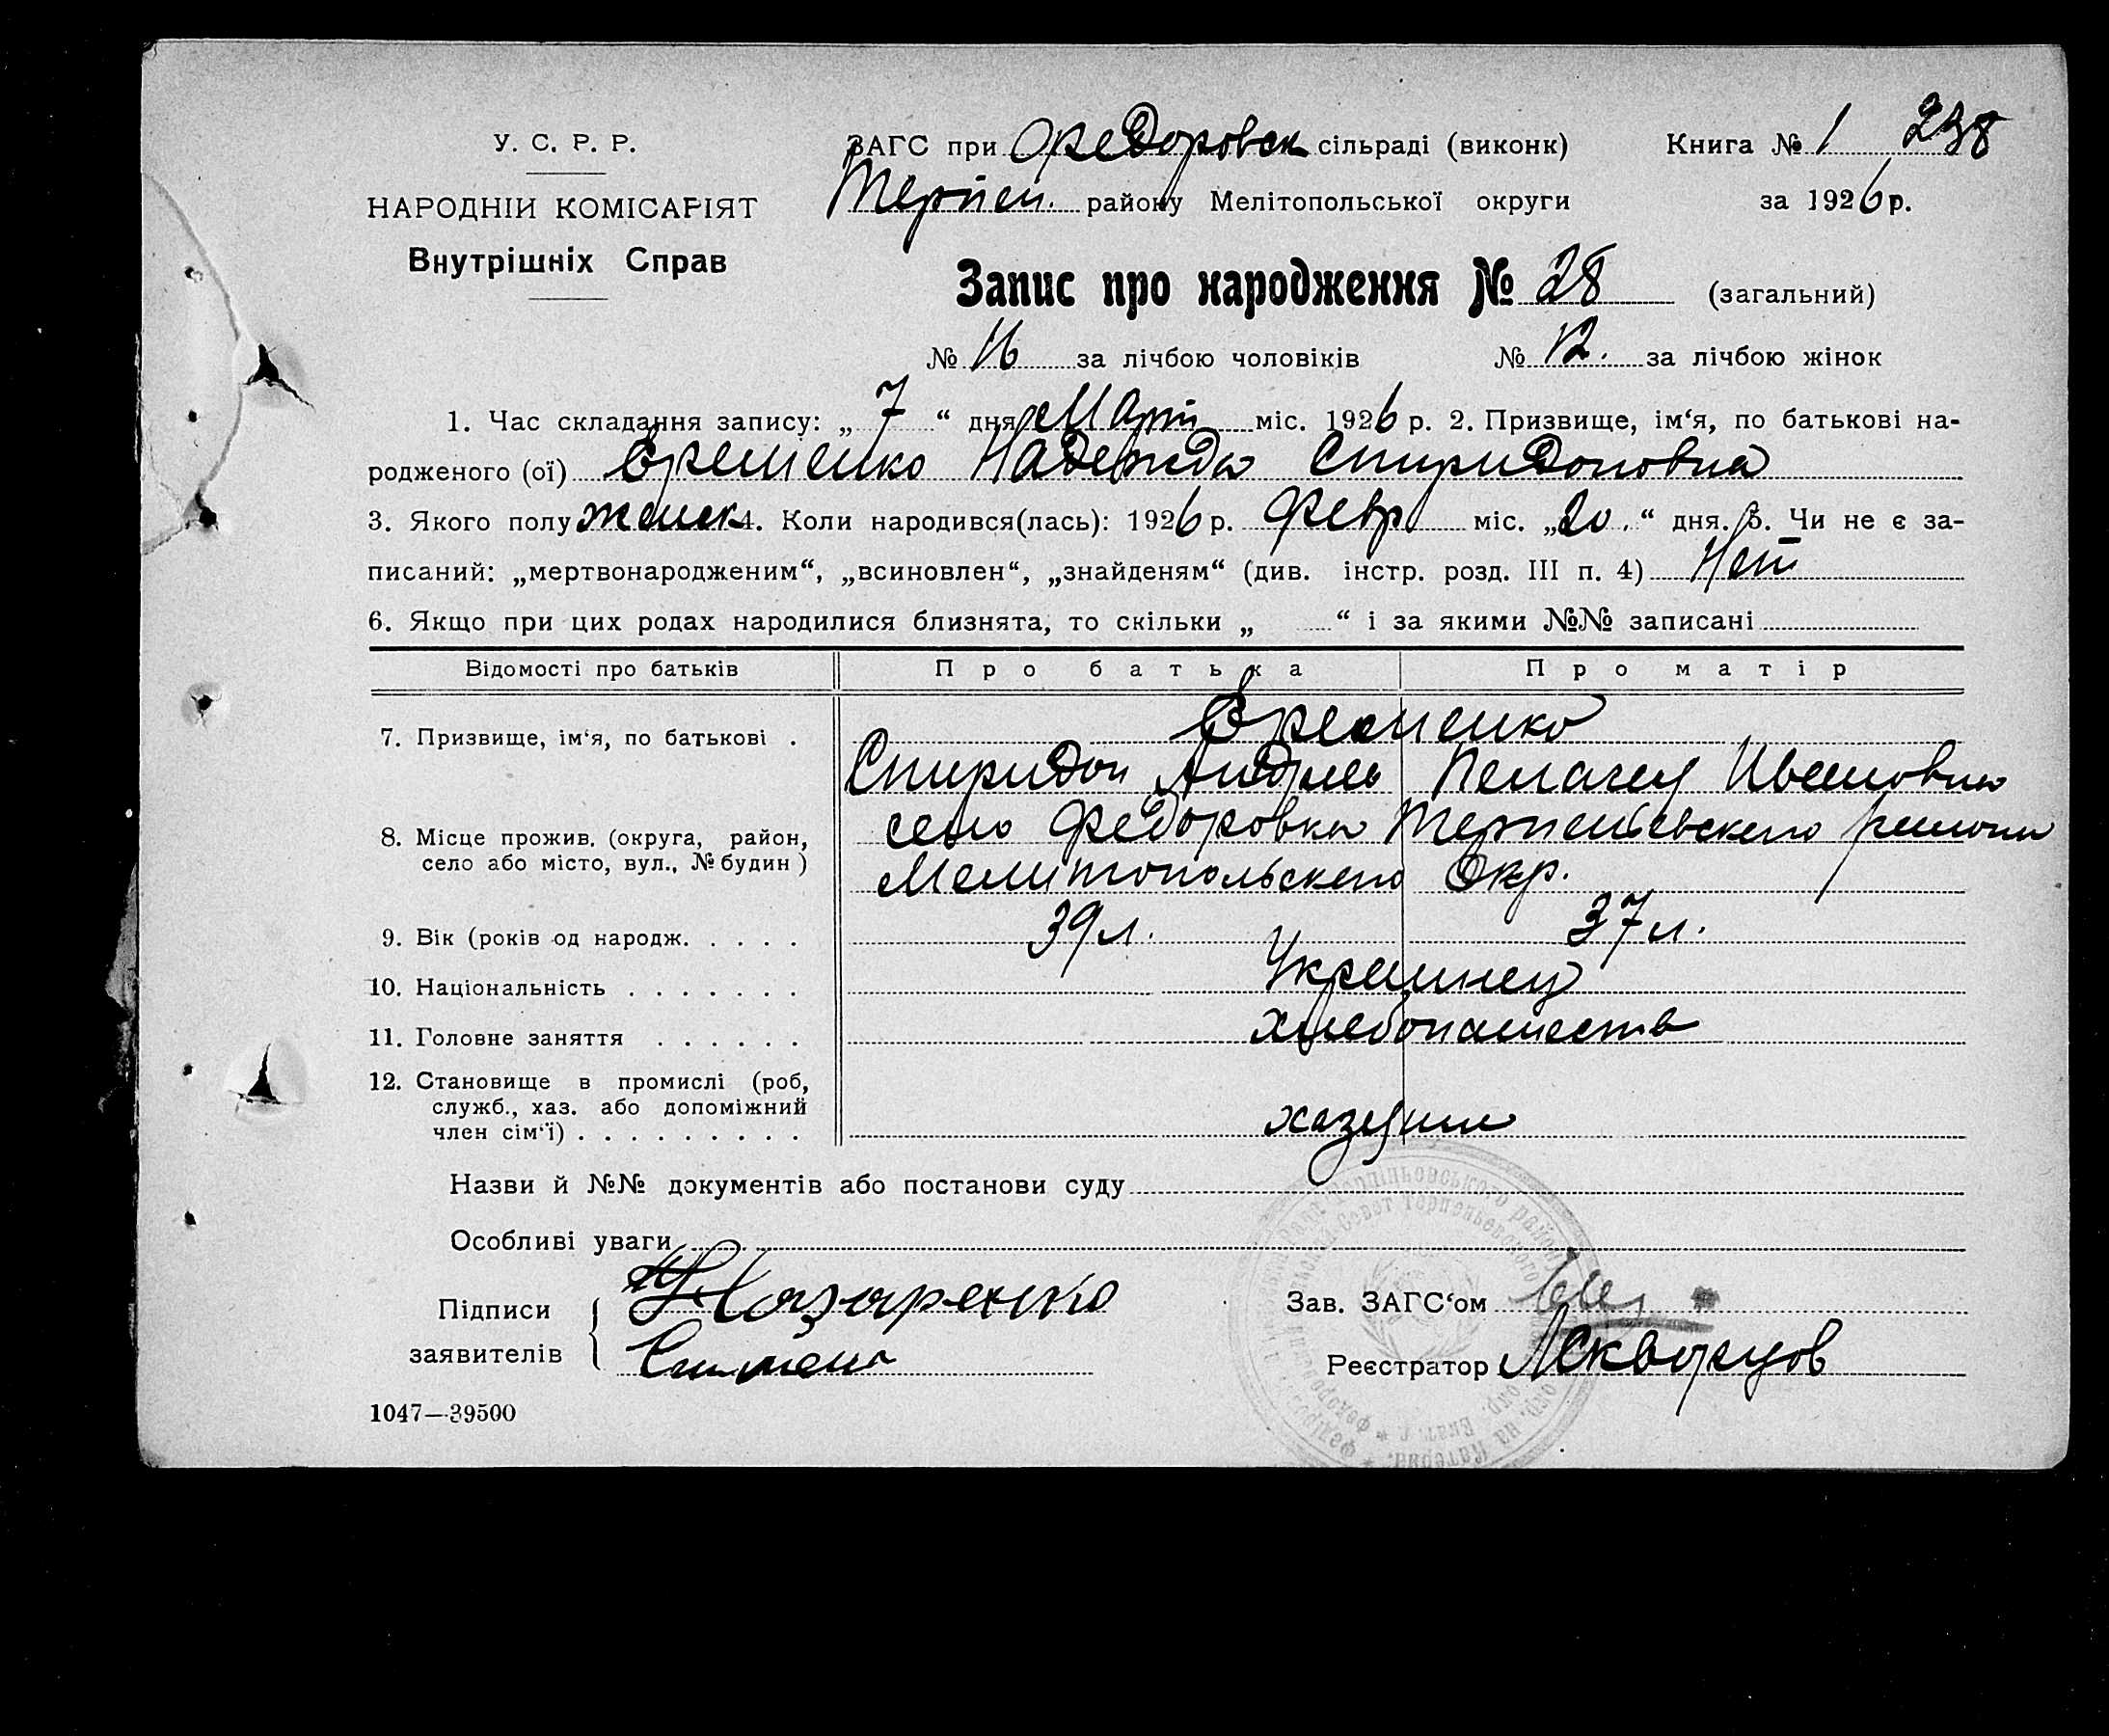 У. С. Р. Р.
НАРОДНІИ КОМІСАРІЯТ
Внутрішніх Справ
ЗАГС при Федоровск сільраді (виконк) Книга № 1 238
Терпен. району Мелітопольської округи за 1926 р.
Запис про народження № 28 (загальний)
№ 16 за лічбою чоловіків № 12. за лічбою жінок
1. Час складання запису: „ 7 “ дня Март міс. 1926 р. 2. Призвище, ім‘я, по батькові на-
родженого (ої) Еременко Надежда Спиридоновна
3. Якого полу женск 4. Коли народився(лась): 1926 р. Февр міс. „20.“ дня. 5. Чи не є за-
писаний: „мертвонародженим“, „всиновлен“, „знайденям“ (див. інстр. розд. III п. 4) Нет
6. Якщо при цих родах народилися близнята, то скільки „ “ і за якими №№ записані
Відомості про батьків Про батька Про матір
Еременко
7. Призвище, ім‘я, по батькові .
Спиридон Андреев Пелагея Ивановна
8. Місце прожив. (округа, район, село Федоровка Терпеньевского района
село або місто, вул., № будин ) Мелитопольского Окр.
9. Вік (років од народж. . . . . 39 л. 37 л.
10. Національність . . . . . . . Украинец
11. Головне заняття . . . . . . хлебопашеств
12. Становище в промислі (роб,
служб., хаз. або допоміжний
член сім‘ї) . . . . . . . . . хазяин
Назви й №№ документів або постанови суду
Особливі уваги
Підписи Назаренко
заявителів
Зав. ЗАГС‘ом
Реєстратор Скворцов
1047—39500